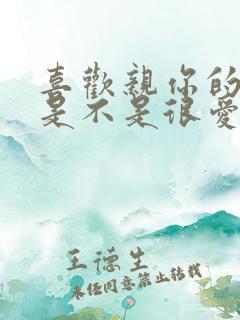 喜歡親你的
是不是很愛
王德生
未经同意禁止转载